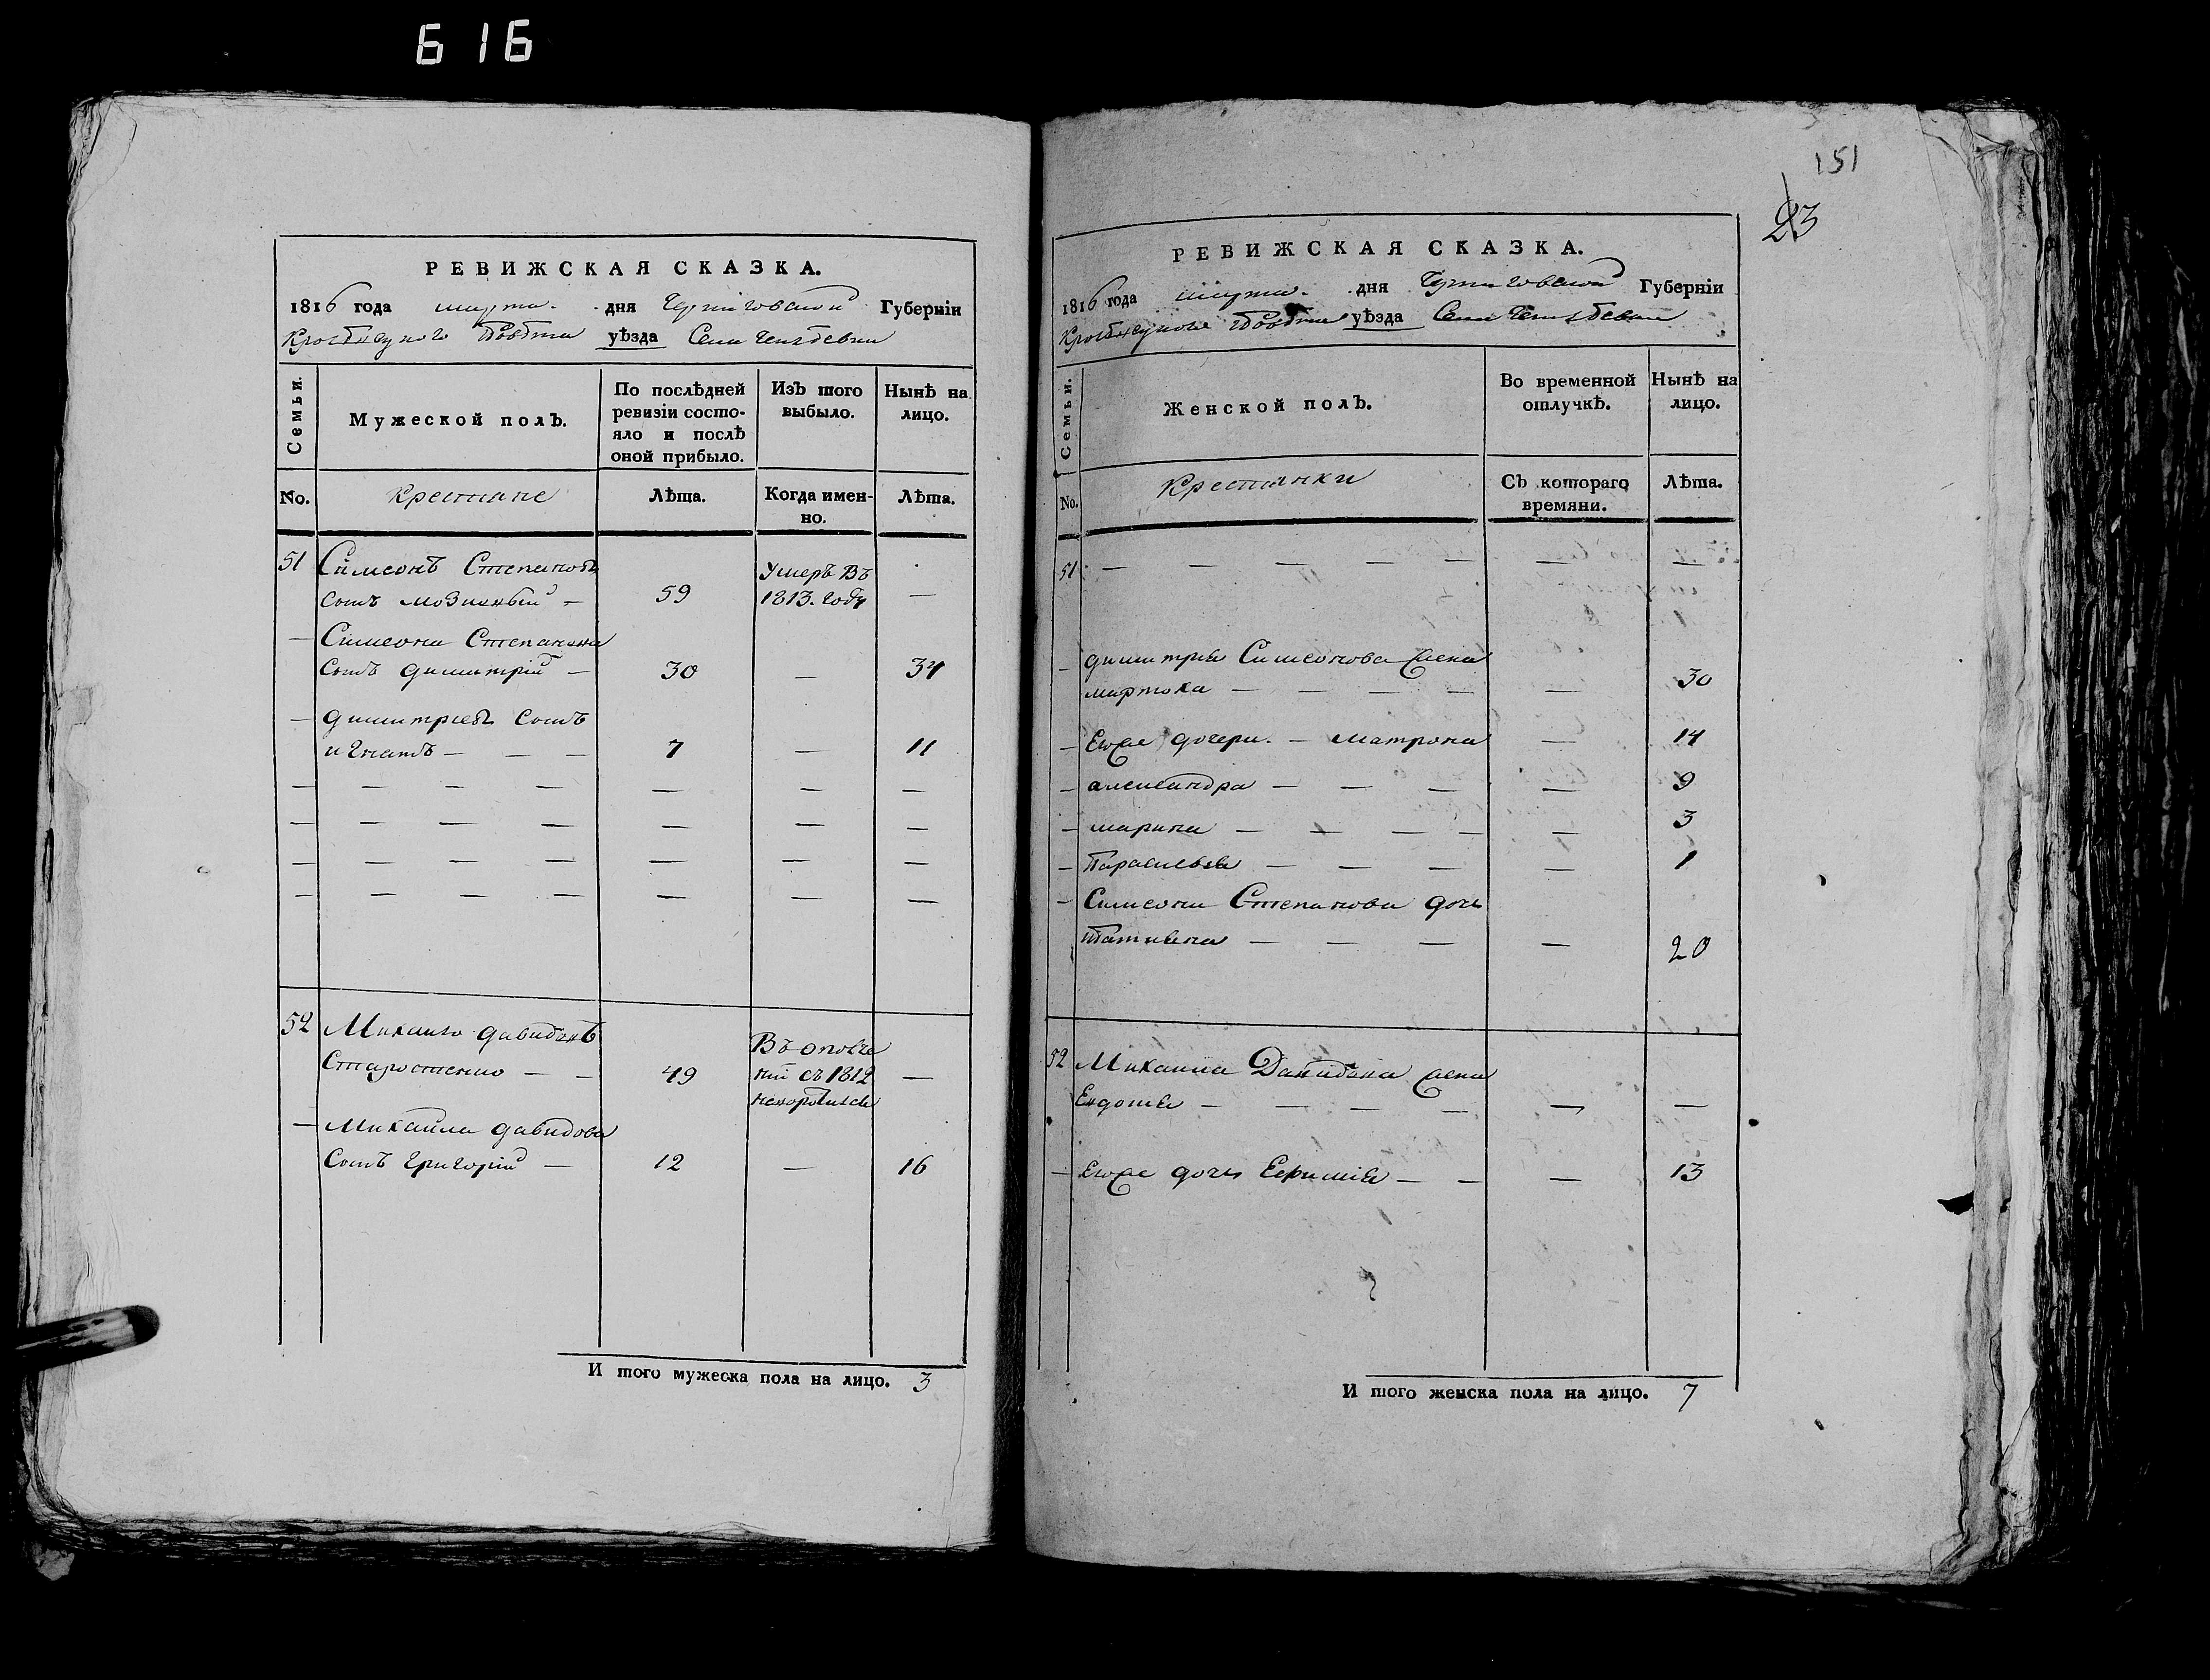 616
РЕВИЖСКАЯ СКАЗКА.
1816 года марта дня Черниговской Губерніи
повѣта уѣзда Села
Семьи.
Мужеской полъ.
По послѣдней ревизіи состояло и послѣ оной прибыло.
Изъ того выбыло.
Нынѣ на лицо.
No.
Крестяне
Лѣта.
Когда именно.
Лѣта.
51 Симеонъ Степановъ
сынъ 59 Умеръ Въ 1813. году —
— Симеона Степанова
сынъ димитрій — 30 — 34
— димитріевъ сынъ
игнатъ — — — 7 — 11
— — — — — — — —
— — — — — — — —
— — — — — — — —
— — — — — — — —
52 Михайло давидовъ
Старостенко — — 49 съ 1812 —
— Михайла давидова
сынъ григорій — 12 — 16
И того мужеска пола на лицо. 3
151
23
РЕВИЖСКАЯ СКАЗКА.
1816 года марта. дня Черниговской Губерніи
повѣта уѣзда Села
Семьи.
Женской полъ.
Во временной отлучкѣ.
Нынѣ на лицо.
No.
Крестянки
Съ котораго времяни.
Лѣта.
51 — — — — — — —
— димитрія Симеонова жена
— — — — — 30
— Егоже дочери. — матрона — 14
— александра — — — — 9
— марина — — — — — 3
— параскевия — — — — 1
— Симеона Степанова дочь
татияна — — — — 20
52 Михаила Давидова жена
— — — — — —
— Егоже дочь Ефимія — — — 13
И того женска пола на лицо. 7